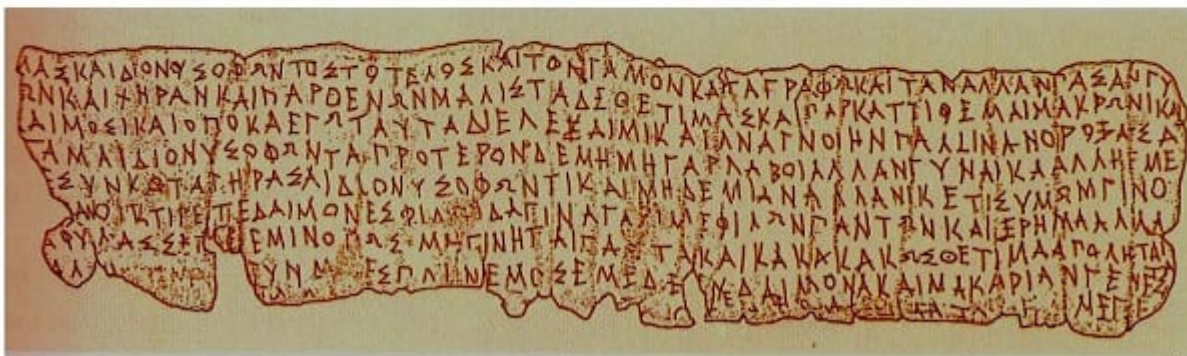 ΑΣΚΑΙΔΙΟΝΥΣΟΦΩΝΤΟΣΤΟΤΕΛΟΣΚΑΙΤΟΝΓΑΜΟΝΚΑΤΑΓΡΑΦΩΚΑΙΤΑΝΑΛΛΑΝΠΑΣΑΝΓΥ
ΩΝΚΑΙΧΗΡΑΝΚΑΙΠΑΡΘΕΝΩΝΜΑΛΙΣΤΑΔΕΘΕΤΙΜΑΣΚΑΙΠΑΡΚΑΤΤΙΘΕΜΑΙΜΑΚΡΩΝΙΚΑΙ
ΑΙΜΟΣΙΚΑΙΟΠΟΚΑΕΓΩΤΑΥΤΑΔΙΕΛΕΞΑΙΜΙΚΑΙΑΝΑΓΝΟΙΗΝΠΑΛΛΙΝΑΝΟΡΟΞΑΣΑ
ΓΑΜΑΙΔΙΟΝΥΣΟΦΩΝΤΑΠΡΟΤΕΡΟΝΔΕΜΗΜΗΓΑΡΛΑΒΟΙΑΛΛΑΝΓΥΝΑΙΚΑΑΛΛΗΕΜΕ
ΣΥΝΚΑΤΑΓΗΡΑΣΑΙΔΙΟΝΥΣΟΦΩΝΤΙΚΑΙΜΗΔΕΜΙΑΝΑΛΛΑΝΙΚΕΤΙΣΥΜΩΜΓΙΝΟ
ΑΝΟΙΚΤΙΡΕΤΕΔΑΙΜΟΝΕΣΦΙΛΟΙΔΑΓΙΝΑΓΑΡΙΜΕΦΙΛΩΝΠΑΝΤΩΝΚΑΙΕΡΗΜΑΑΛΛΑ
ΑΦΥΛΑΣΣΕΤΕΕΜΙΝΟΠΩΣΜΗΓΙΝΗΤΑΙΤΑΥΤΑΚΑΙΚΑΚΑΚΑΚΩΣΘΕΤΙΜΑΑΠΟΛΗΤΑΙ
ΑΛ ΥΝΜ ΕΣΠΛΗΝΕΜΟΣΕΜΕΔΕ ΕΥΔΑΙΜΟΝΑΚΑΙΜΑΚΑΡΙΑΝΓΕΝΕΣ
ΜΕΓΕ